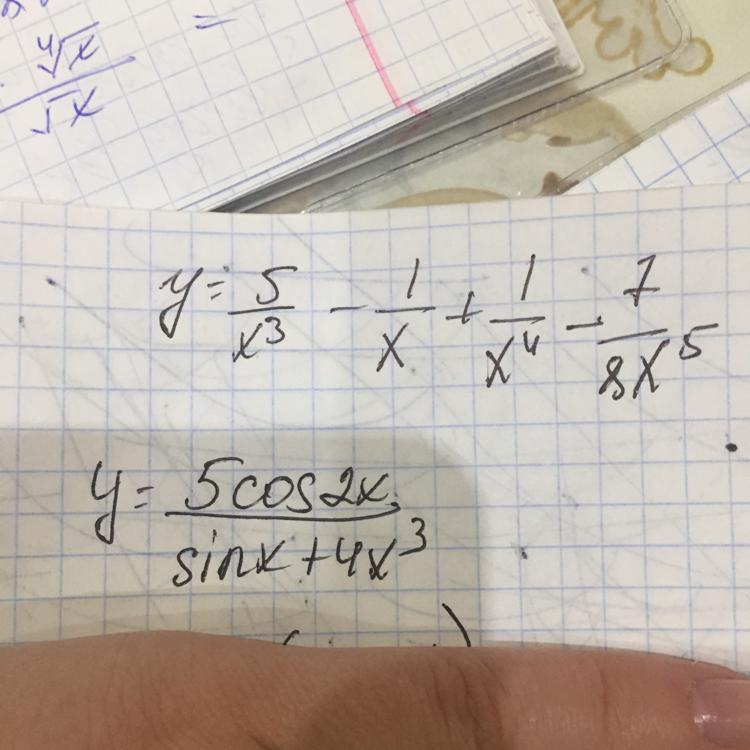 ∜x / √x =
y = 5/x³ - 1/x + 1/x⁴ - 7/8x⁵
y = 5cos2x / sinx + 4x³